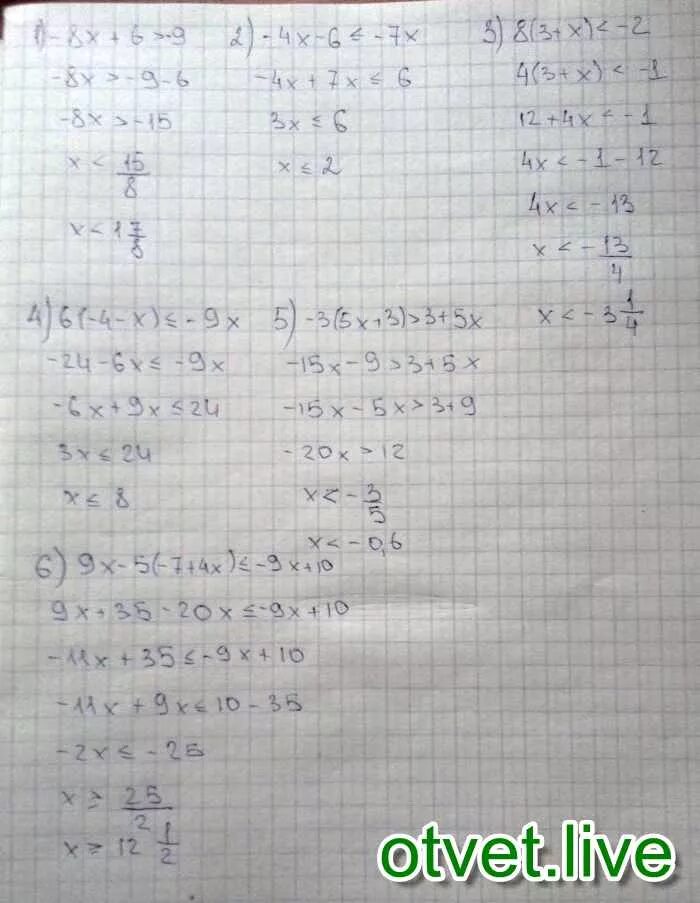 1) -8x + 6 > -9
-8x > -9 - 6
-8x > -15
x < 15/8
x < 1 7/8
2) -4x - 6 ≤ -7x
-4x + 7x ≤ 6
3x ≤ 6
x ≤ 2
3) 8(3+x) < -2
4(3+x) < -1
12 + 4x < -1
4x < -1 - 12
4x < -13
x < -13/4
x < -3 1/4
4) 6(-4-x) ≤ -9x
-24 - 6x ≤ -9x
-6x + 9x ≤ 24
3x ≤ 24
x ≤ 8
5) -3(5x+3) > 3+5x
-15x - 9 > 3 + 5x
-15x - 5x > 3 + 9
-20x > 12
x < -3/5
x < -0,6
6) 9x - 5(-7+4x) ≤ -9x+10
9x + 35 - 20x ≤ -9x + 10
-11x + 35 ≤ -9x + 10
-11x + 9x ≤ 10 - 35
-2x ≤ -25
x ≥ 25/2
x ≥ 12 1/2
otvet.live